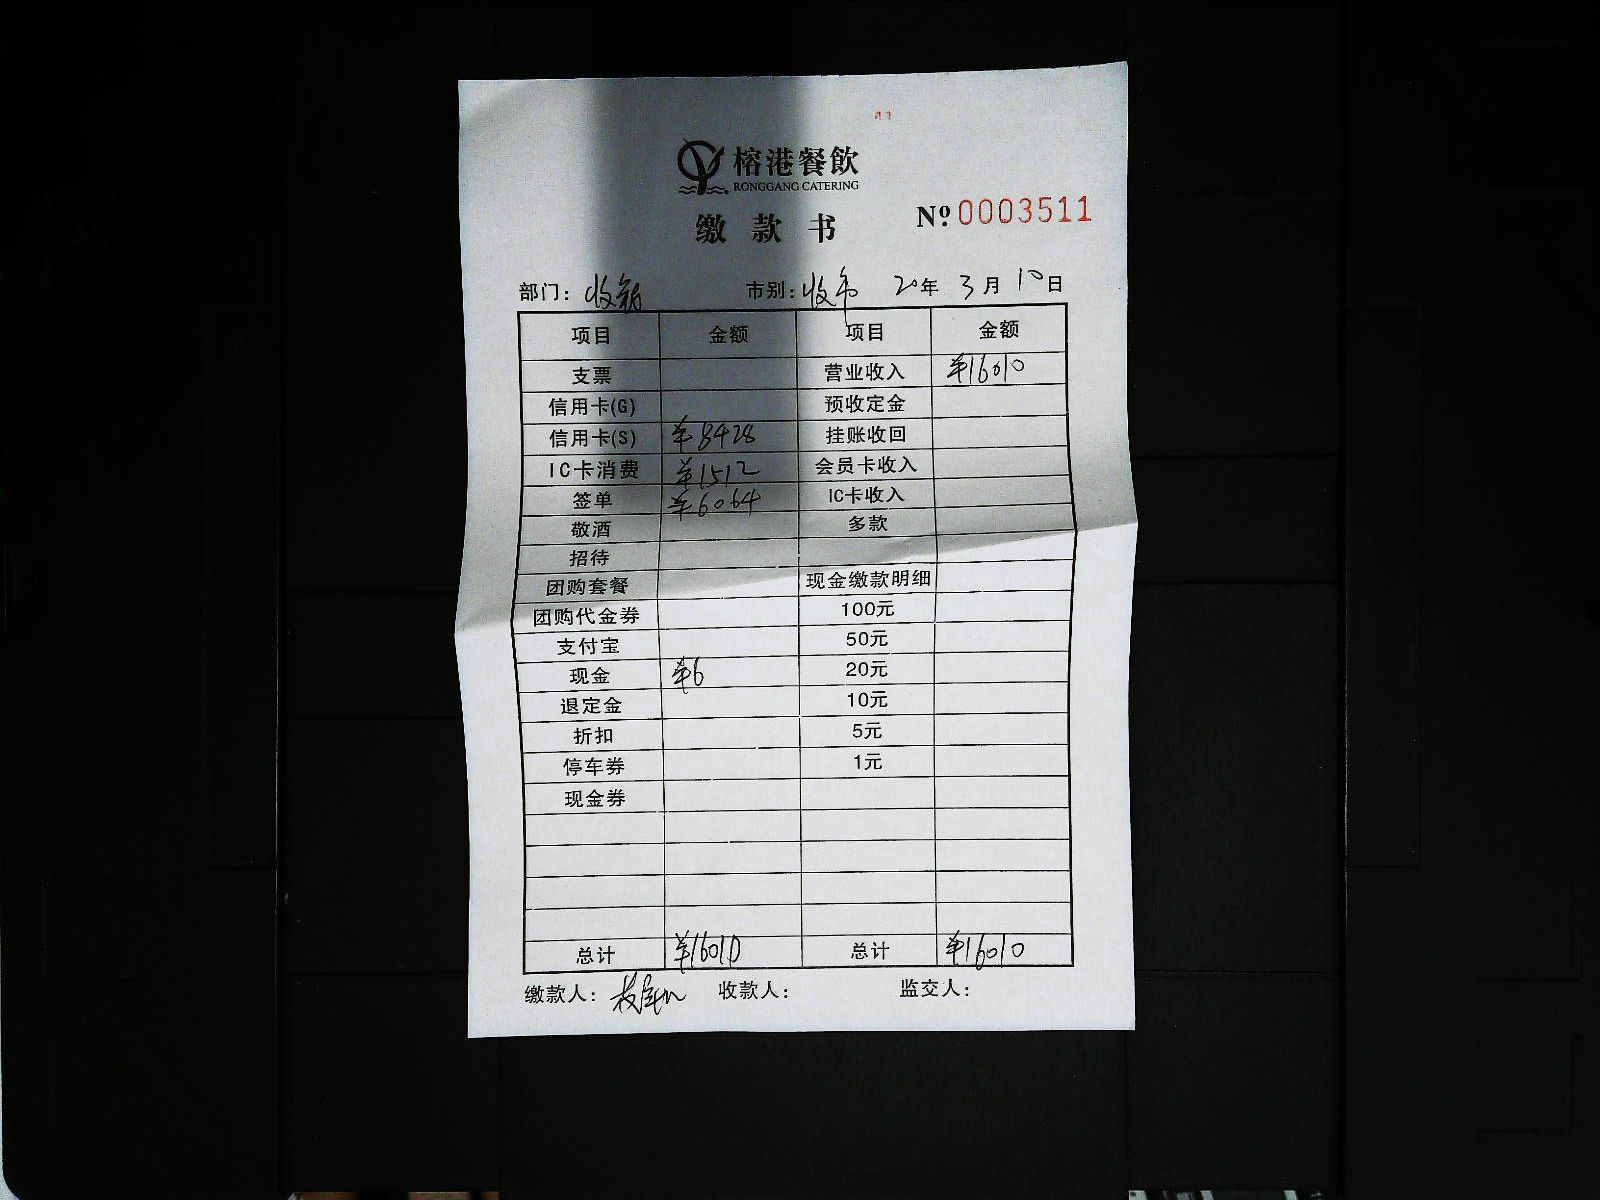 榕港餐飲
RONGGANG CATERING
缴款书 Nº 0003511
部门： 收银 市别：收市 20年 3月 10日
项目 金额 项目 金额
支票 营业收入 ¥16010
信用卡(G) 预收定金
信用卡(S) ¥8428 挂账收回
IC卡消费 ¥1512 会员卡收入
签单 ¥6064 IC卡收入
敬酒 多款
招待
团购套餐 现金缴款明细
团购代金券 100元
支付宝 50元
现金 ¥6 20元
退定金 10元
折扣 5元
停车券 1元
现金券
总计 ¥16010 总计 ¥16010
缴款人： 收款人： 监交人：